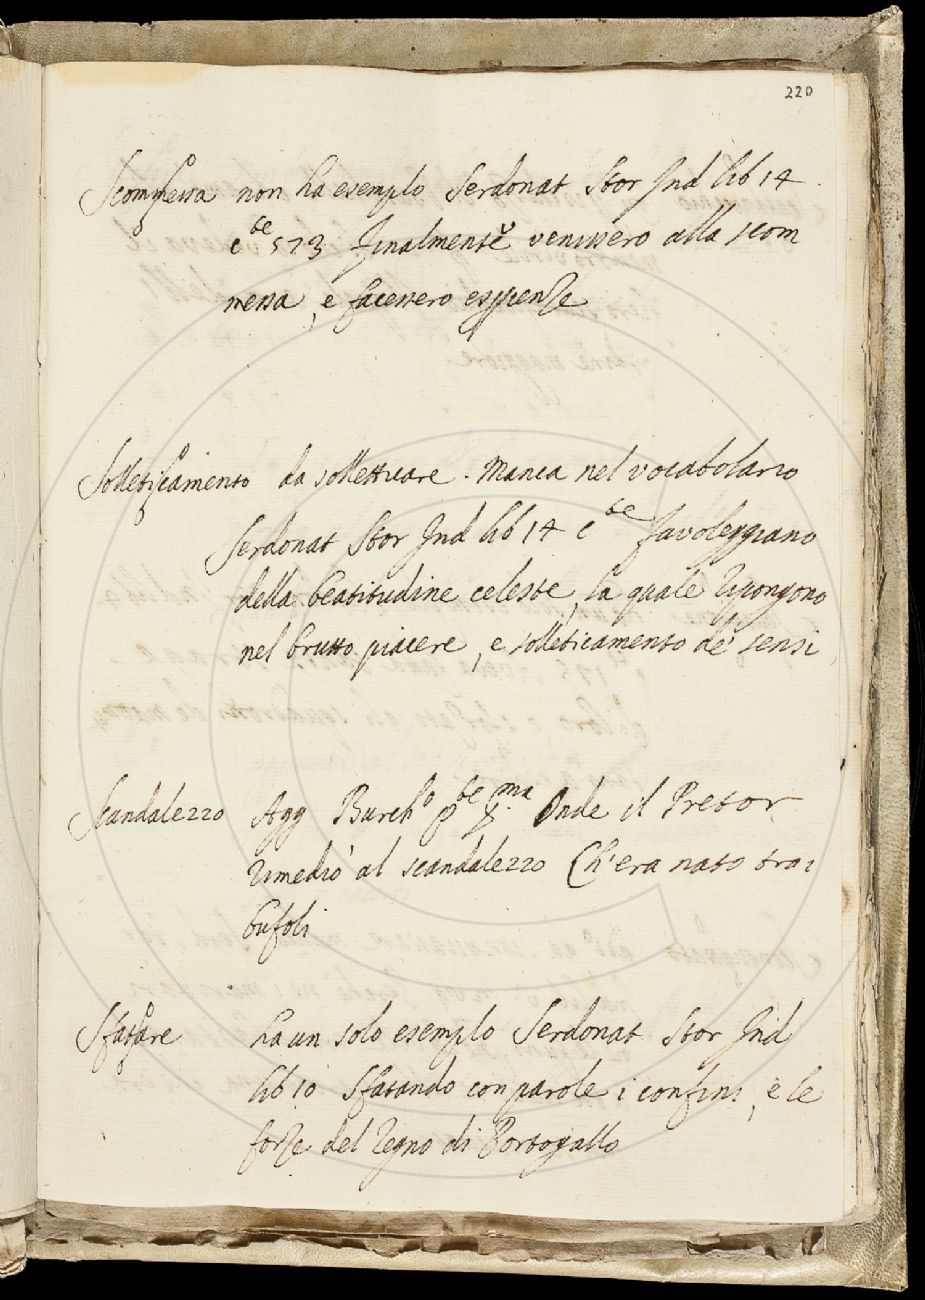 220
Scommessa non ha esemplo Serdonat Stor Ind lib 14
c te 573 Finalmente venissero alla scom
messa, e facessero esperienze
Solleticamento da solletticare. Manca nel vocabolario
Serdonat Stor Ind lib 14 c te favoleggiano
della beatitudine celeste, la quale ripongono
nel brutto piacere, e solleticamento de' sensi
Scandalezzo Agg Burch° p te p ma Onde il Pretor
rimediò al scandalezzo Ch'era nato tra i
bufoli
Sfatare ha un solo esemplo Serdonat Stor Ind
lib 10 sfatando con parole i confini, e le
forze del regno di Portogallo